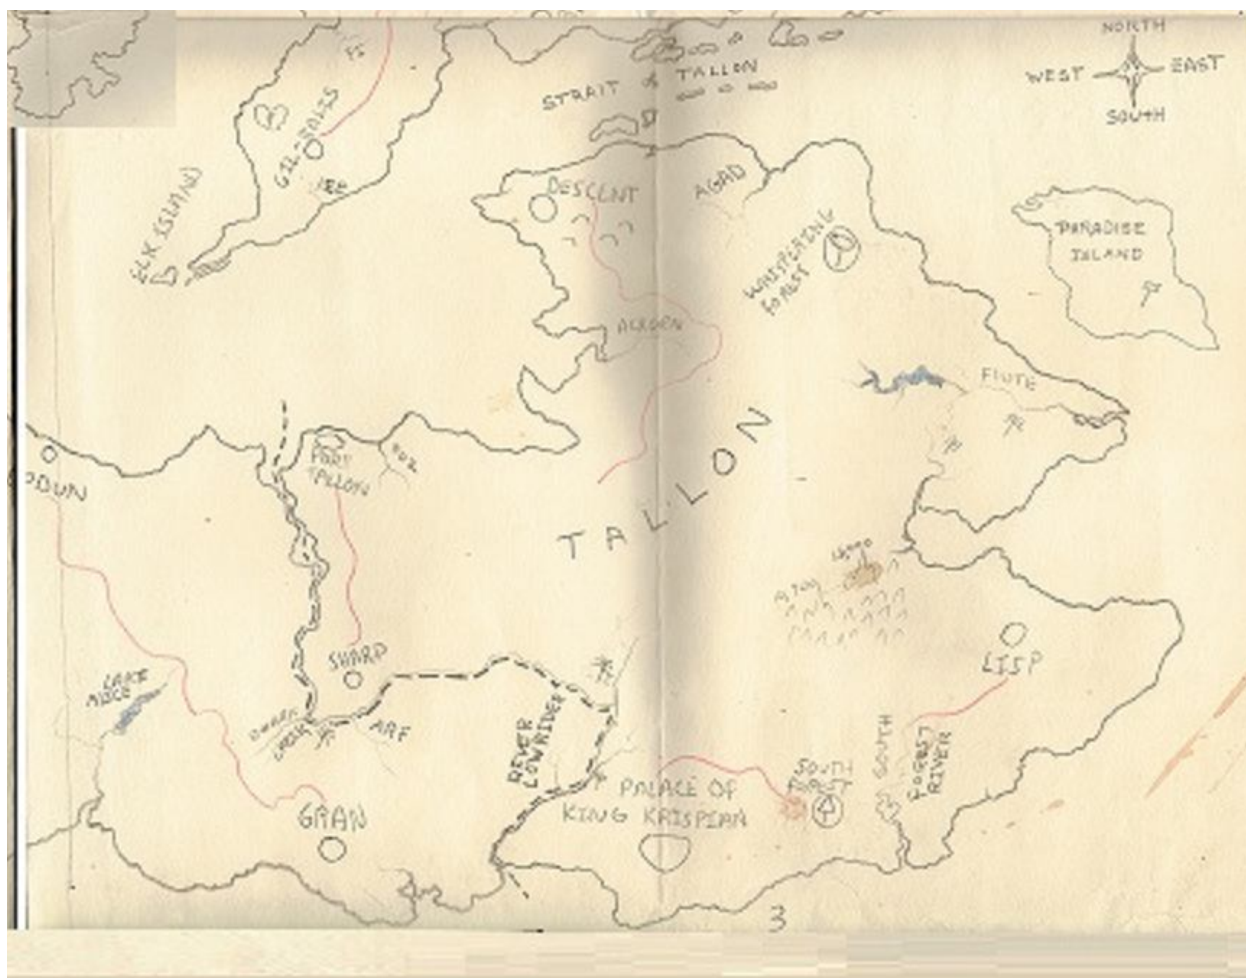 NORTH
WEST
EAST
SOUTH
STRAIT of TALLON
GIL-GALIS
ELK ISLAND
DESCENT
AGAD
WHISPERING
FOREST
PARADISE
ISLAND
ACKORN
FLUTE
PORT
TALLON
TALLON
SHARP
LISP
LAKE
ARF
RIVER
LOWRIDER
GRAN
PALACE OF
KING KRISPIAN
SOUTH
FOREST
SOUTH
FOREST
RIVER
3